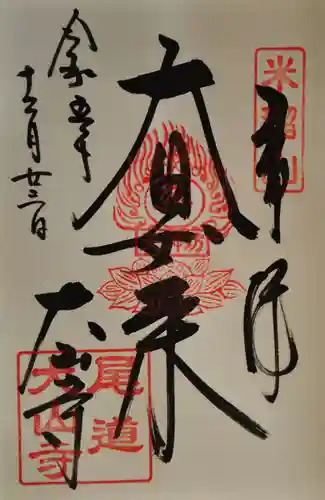 奉拝
大日如来
大山寺
令和五年
十二月廿三日
尾道
大山寺